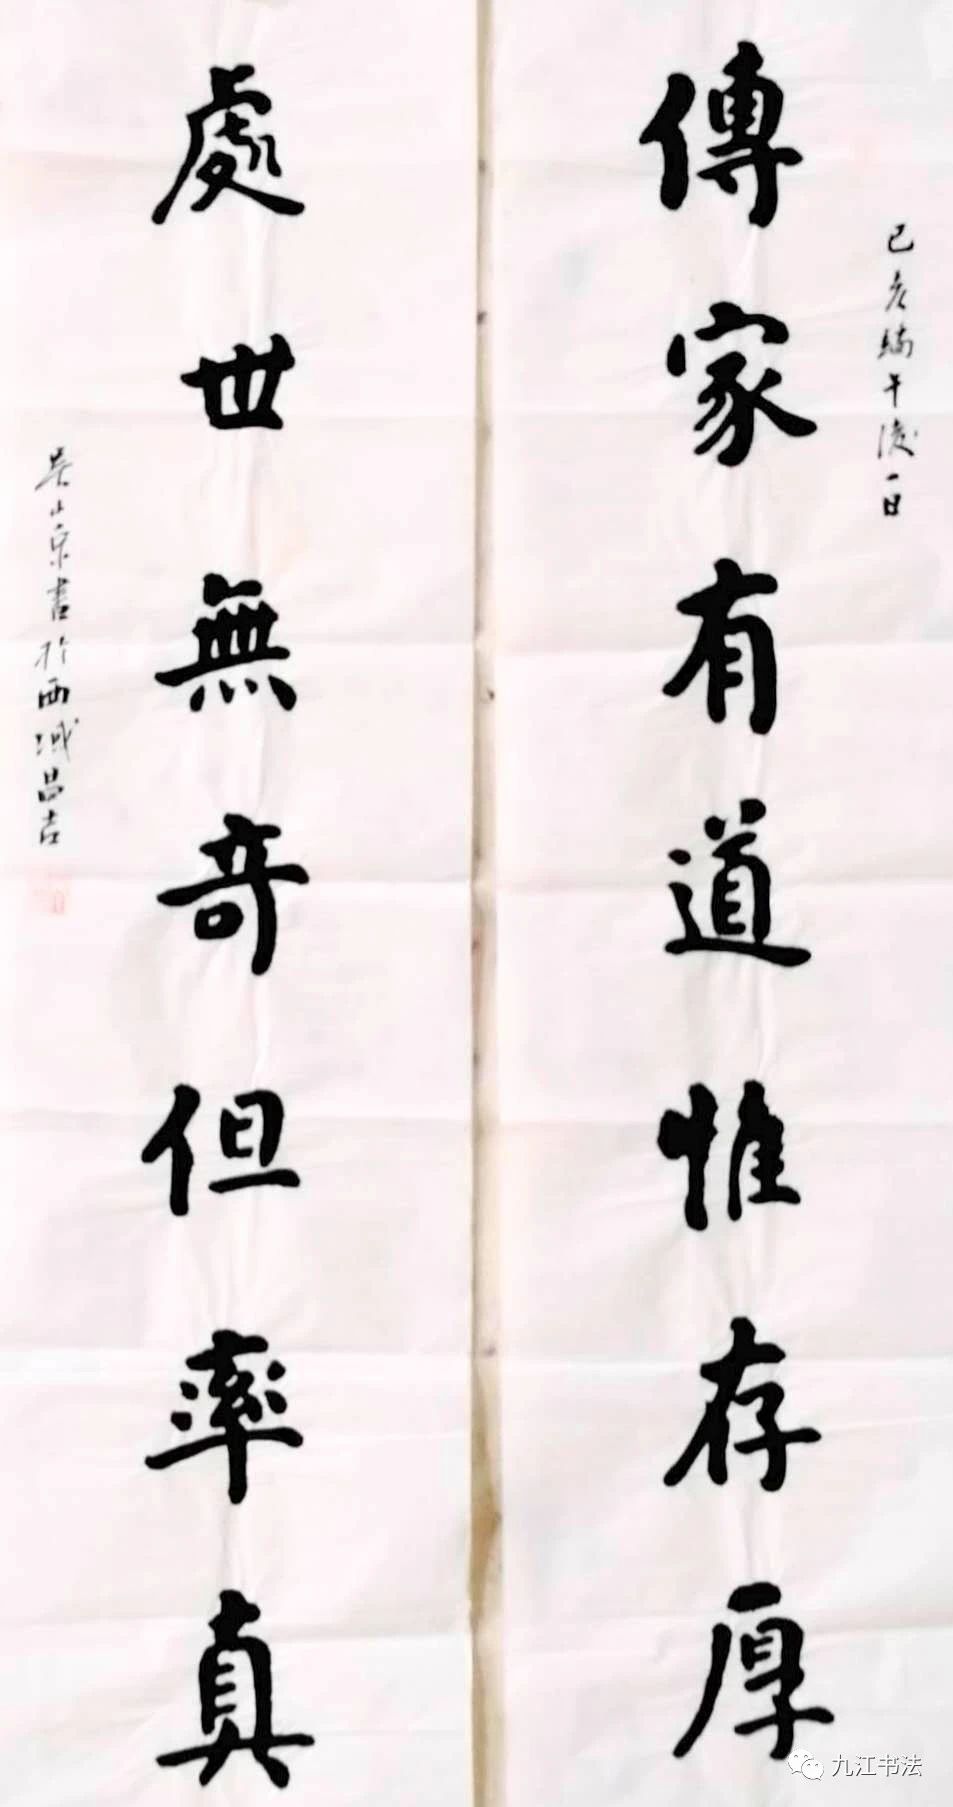 傳家有道惟存厚
己亥端午後一日
處世無奇但率真
吴山京書於西域昌吉
九江书法